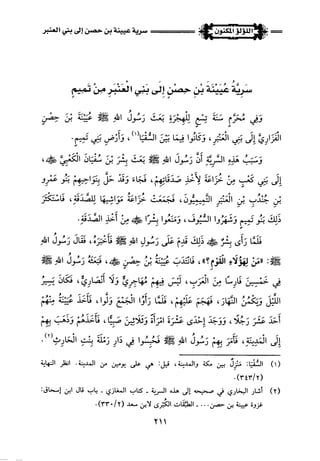 اللؤلؤ المكنون
سرية عيينة بن حصن إلى بني العنبر
سَرِيَّةُ عُيَيْنَةَ بْنِ حِصْنٍ إِلَى بَنِي العَنْبَرِ مِنْ تَمِيمٍ
وَفِي مُحَرَّمٍ سَنَةَ تِسْعٍ لِلْهِجْرَةِ بَعَثَ رَسُولُ اللهِ ﷺ عُيَيْنَةَ بْنَ حِصْنٍ
الفَزَارِيَّ إِلَى بَنِي العَنْبَرِ، وَكَانُوا فِيمَا بَيْنَ السُّقْيَا(١)، وَأَرْضِ بَنِي تَمِيمٍ.
وَسَبَبُ هَذِهِ السَّرِيَّةِ أَنَّ رَسُولَ اللهِ ﷺ بَعَثَ بِشْرَ بْنَ سُفْيَانَ الكَعْبِيَّ ﷺ،
إِلَى بَنِي كَعْبٍ مِنْ خُزَاعَةَ لِأَخْذِ صَدَقَاتِهِمْ، فَجَاءَ وَقَدْ حَلَّ بِنَوَاحِيهِمْ بَنُو عَمْرِو
بْنِ جُنْدُبِ بْنِ العَنْبَرِ التَّمِيمِيُّونَ، فَجَمَعَتْ خُزَاعَةُ مَوَاشِيَهَا لِلصَّدَقَةِ، فَاسْتَكْثَرَ
ذَلِكَ بَنُو تَمِيمٍ وَشَهَرُوا السُّيُوفَ، وَمَنَعُوا بِشْرًا ﷺ مِنْ أَخْذِ الصَّدَقَةِ.
فَلَمَّا رَأَى بِشْرٌ ﷺ ذَلِكَ قَدِمَ عَلَى رَسُولِ اللهِ ﷺ فَأَخْبَرَهُ، فَقَالَ رَسُولُ اللهِ
ﷺ: «مَنْ لِهَؤُلَاءِ القَوْمِ؟»، فَانْتَدَبَ عُيَيْنَةُ بْنُ حِصْنٍ ﷺ، فَبَعَثَهُ رَسُولُ اللهِ ﷺ
فِي خَمْسِينَ فَارِسًا مِنَ العَرَبِ، لَيْسَ فِيهِمْ مُهَاجِرِيٌّ وَلَا أَنْصَارِيٌّ، فَكَانَ يَسِيرُ
اللَّيْلَ وَيَكْمُنُ النَّهَارَ، فَهَجَمَ عَلَيْهِمْ، فَلَمَّا رَأَوُا الجَمْعَ وَلَّوْا، فَأَخَذَ عُيَيْنَةُ مِنْهُمْ
أَحَدَ عَشَرَ رَجُلًا، وَوَجَدَ إِحْدَى عَشْرَةَ امْرَأَةً وَثَلَاثِينَ صَبِيًّا، فَأَخَذَهُمْ وَذَهَبَ بِهِمْ
إِلَى المَدِينَةِ، فَأَمَرَ بِهِمْ رَسُولُ اللهِ ﷺ فَحُبِسُوا فِي دَارِ رَمْلَةَ بِنْتِ الحَارِثِ(٢).
(١) السُّقْيَا: مَنْزِلٌ بين مكة والمدينة، قيل: هي على يومين من المدينة. انظر النهاية
(٣٤٣/٢).
(٢) أشار البخاري في صحيحه إلى هذه السرية - كتاب المغازي - باب قال ابن إسحاق:
غزوة عيينة بن حصن... - الطَّبَقَات الكُبْرى لابن سعد (٣٣٠/٢).
٢١١